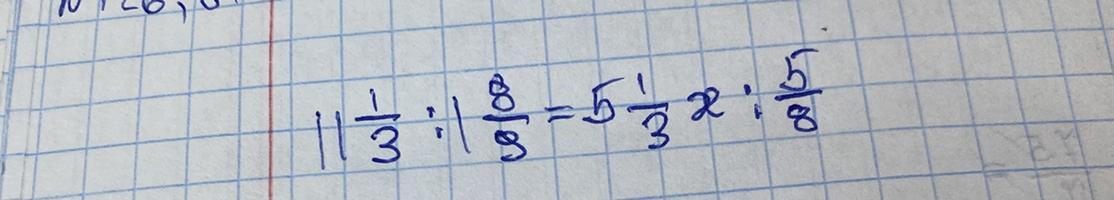 11 1/3 : 1 8/9 = 5 1/3 x : 5/8